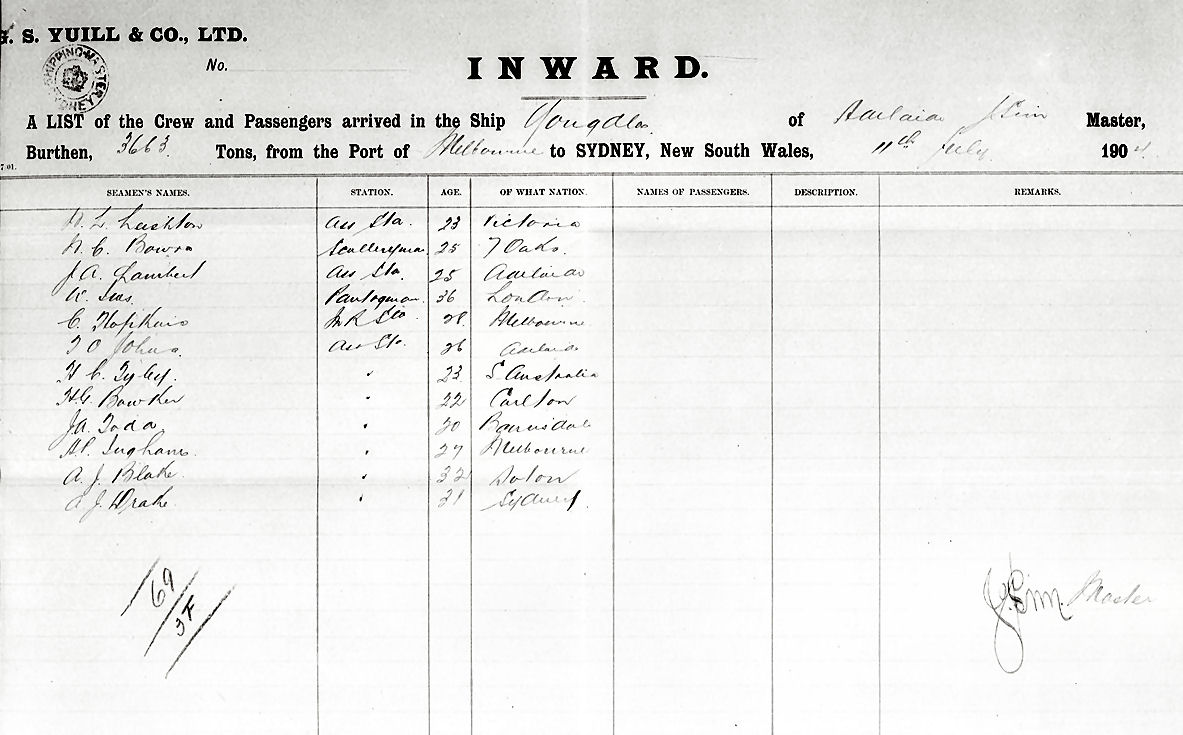 G. S. YUILL & CO., LTD.
SHIPPING MASTER SYDNEY
No.
INWARD.
A LIST of the Crew and Passengers arrived in the Ship Yongala of Adelaide J Sim Master,
Burthen, 3663 Tons, from the Port of Melbourne to SYDNEY, New South Wales, 11th July 1904
7 01.
SEAMEN'S NAMES. STATION. AGE. OF WHAT NATION. NAMES OF PASSENGERS. DESCRIPTION. REMARKS.
Lushton Ass Std. 23 Victoria
N. C. Bowra Sculleryman 25 7 Oaks.
J. A. Lambert Ass Std. 25 Adelaide
W. Pantryman 36 London
C. Hopkins Std 28 Melbourne
Johns Ass Std. 26 Adelaide
H C. " 23 S. Australia
H. G. Bowker " 22 Carlton
J A. Todd " 30 Bairnsdale
Ingham " 27 Melbourne
A. J. Blake " 32
A. J. Drake " 31 Sydney
69
J. Sim Master